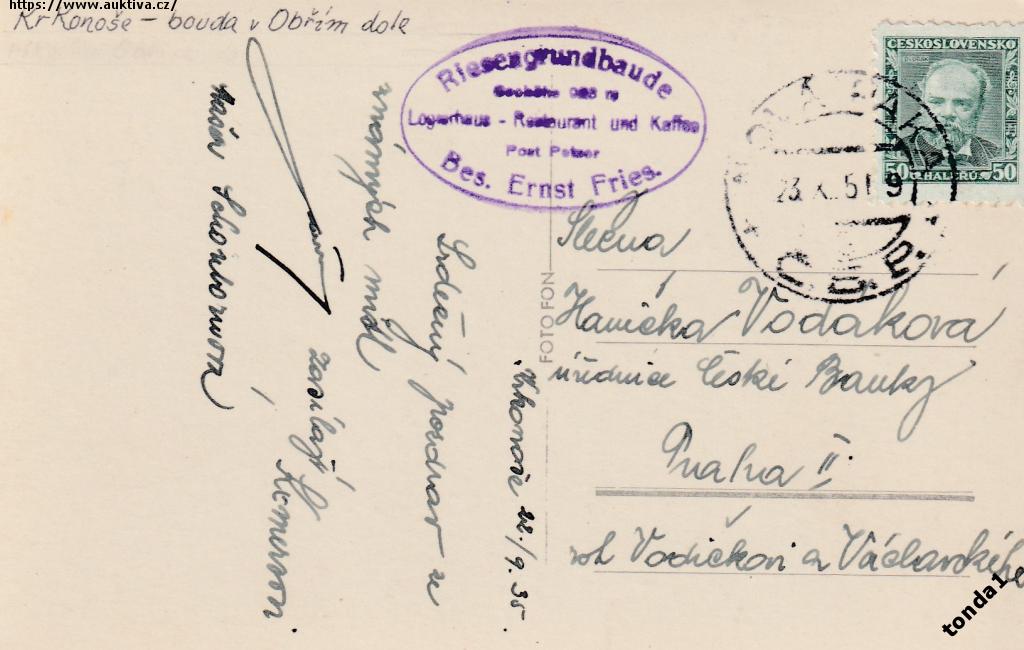 https://www.auktiva.cz/
Krkonoše – bouda v Obřím dole
Riesengrundbaude
Seehöhe 923 m
Logierhaus - Restaurant und Kaffee
Post Petzer
Bes. Ernst Fries.
ČESKOSLOVENSKO
50 HALÉŘŮ 50
NOVÁ PAKA
23. X. 51 9
FOTO FON
Krkonoše 22./9. 35.
Srdečný pozdrav z
známých míst
zasílají
Slečna
Hanička Vodákova
úřednice České Banky
Praha II
roh Vodičkovi a Václavského
tonda1